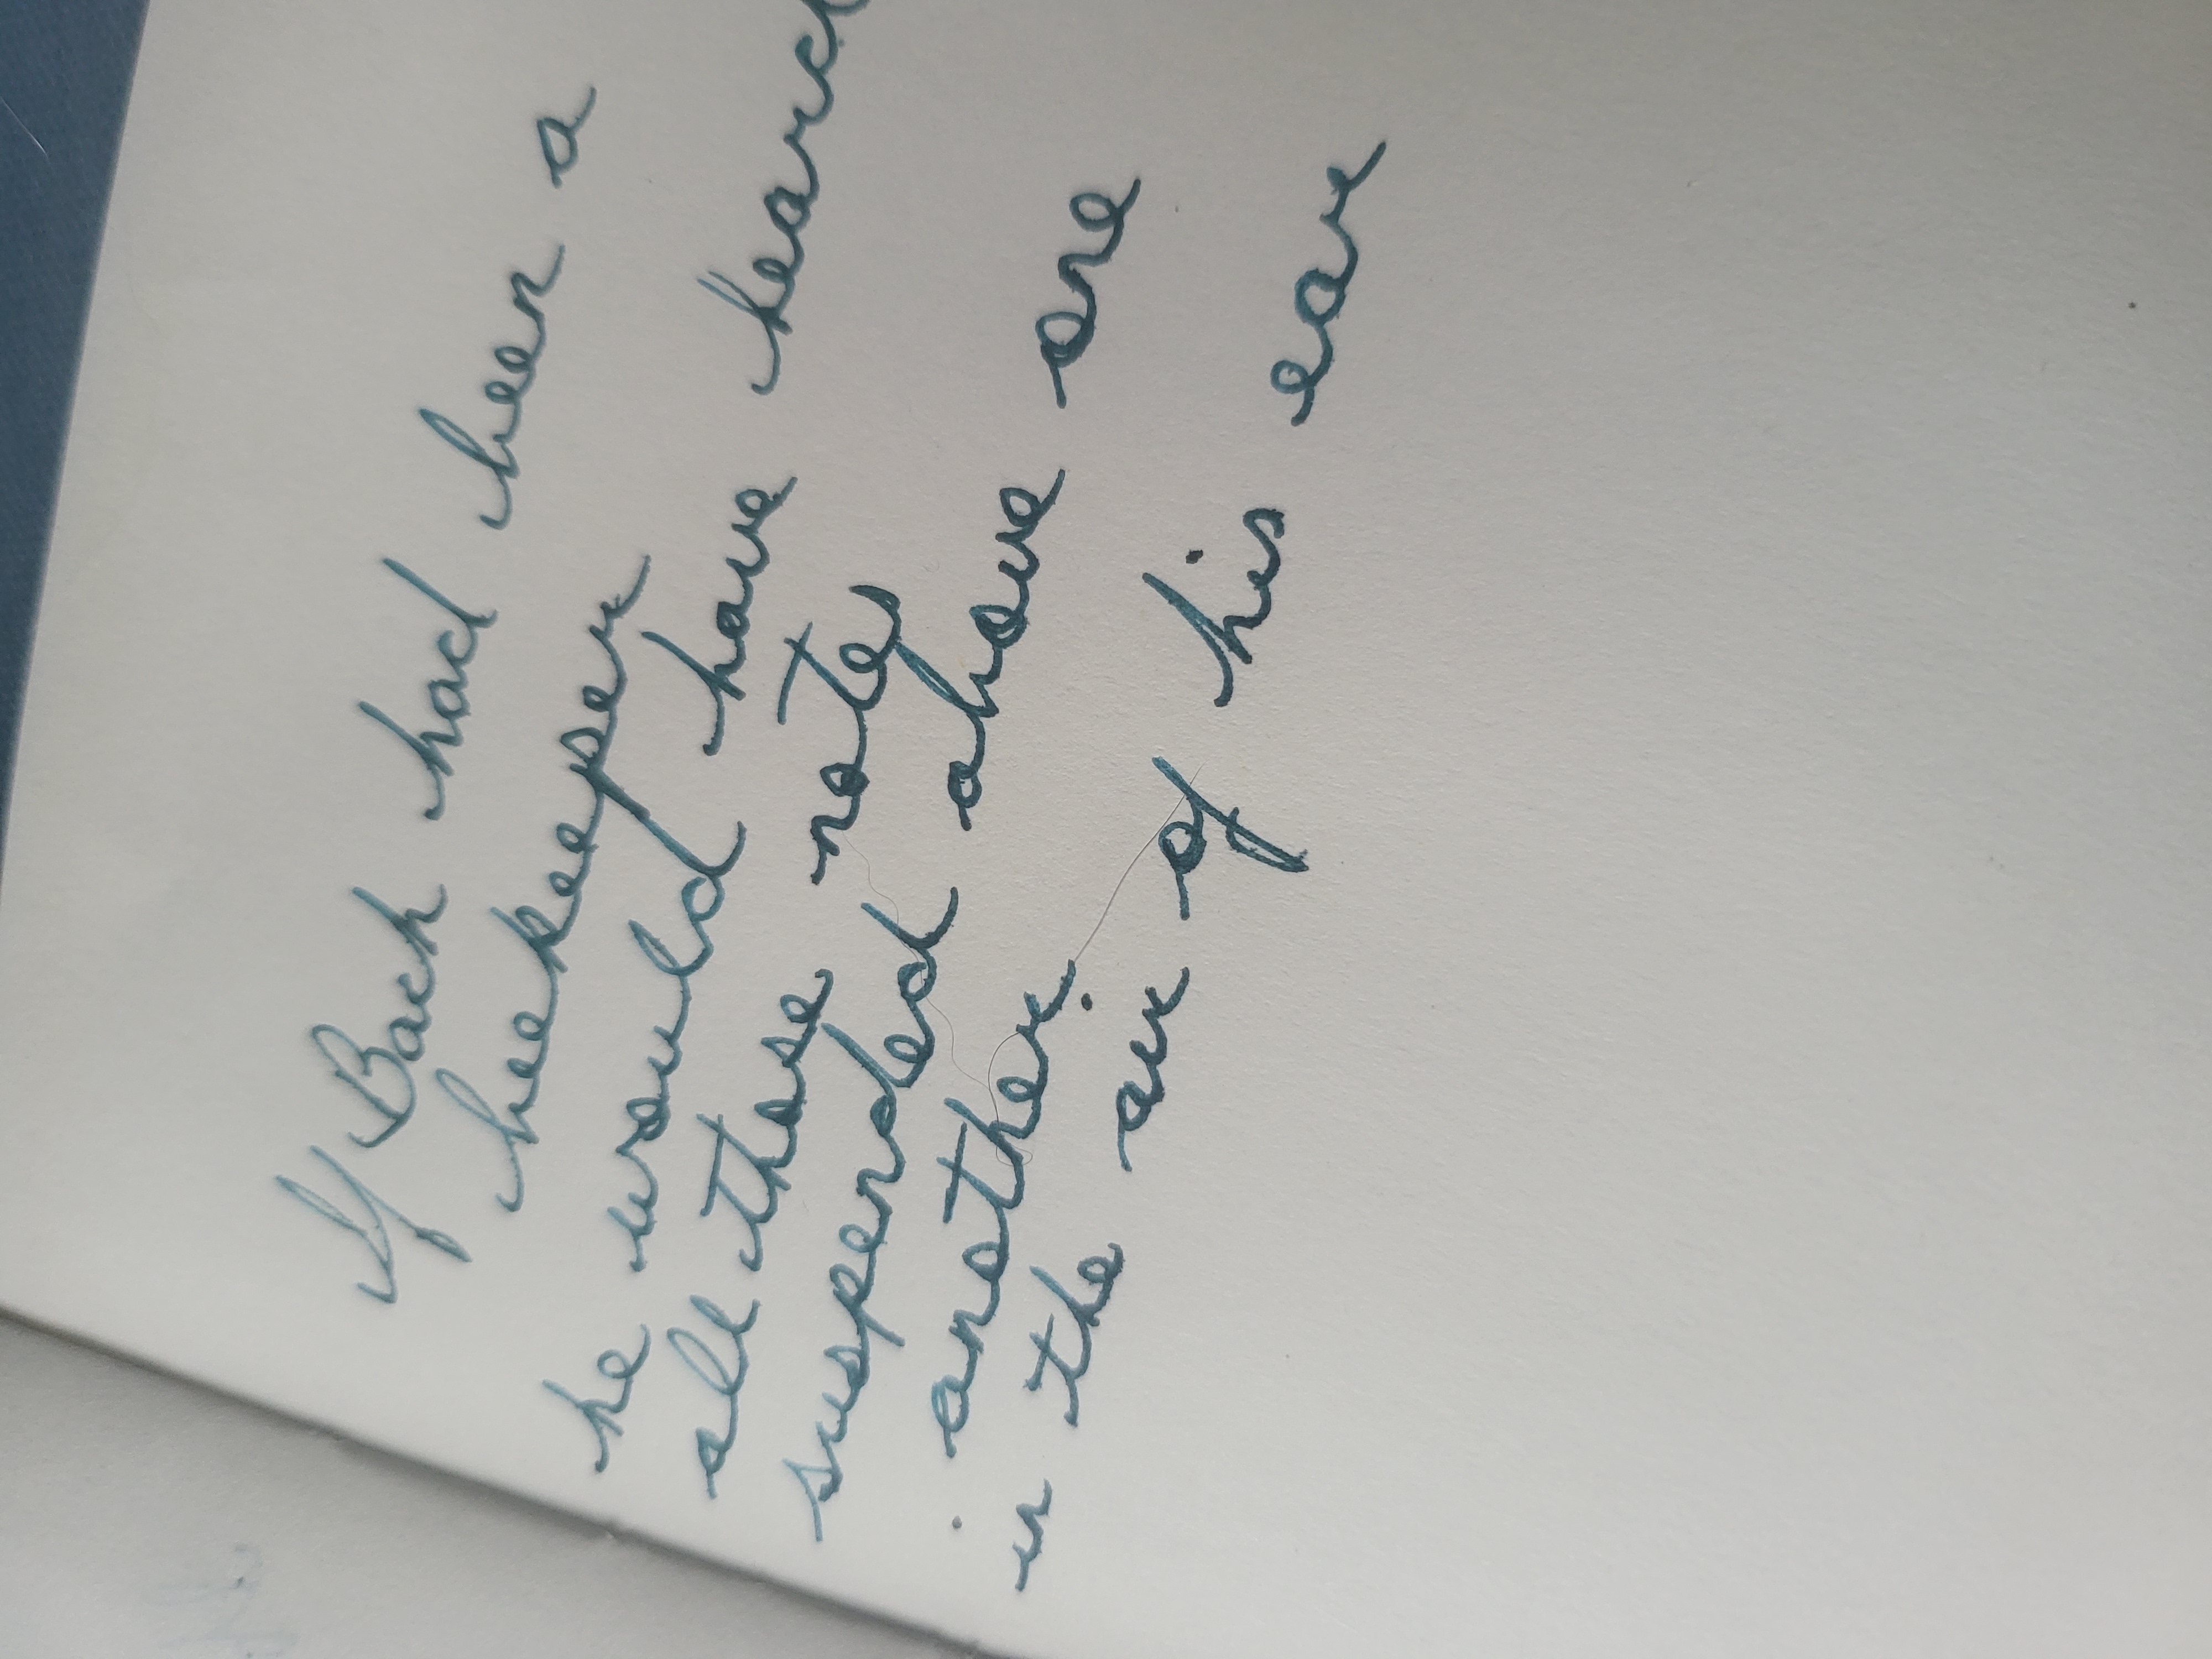 If Bach had been a
beekeeper
he would have heard
all those notes
suspended above one
another.
in the air of his ear